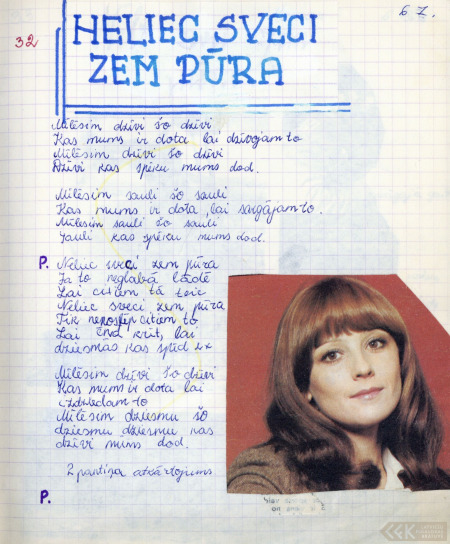 32
6 7.
HELIEC SVECI
ZEM PŪRA
Mīlēsim dzīvi šo dzīvi
Kas mums ir dota lai dzīvojam to
Mīlēsim dzīvi šo dzīvi
Dzīvi kas spēku mums dod.
Mīlēsim sauli šo sauli
Kas mums ir dota, lai sargājam to.
Mīlēsim sauli šo sauli
Sauli kas spēku mums dod.
P. Neliec sveci zem pūra
Ja to neglabā lādē
Lai citiem tā
Neliec sveci zem pūra
Tik citiem to
Lai krīt, lai
dziesmas kas spīd 2x
Mīlēsim dzīvi šo dzīvi
Kas mums ir dota lai
izdziedam to
Mīlēsim dziesmu šo
dziesmu dziesmu kas
dzīvi mums dod.
2 pantiņa atkārtojums
P.